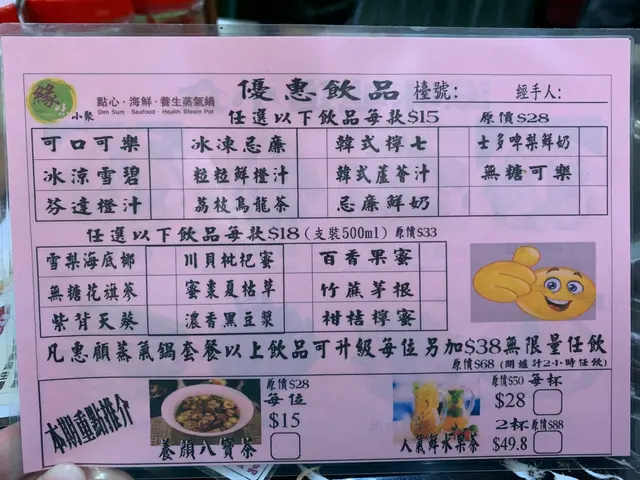 緣 小聚
點心·海鮮·養生蒸氣鍋
Dim Sum · Seafood · Health Steam Pot
優惠飲品 檯號: 經手人:
任選以下飲品每款$15 原價$28
可口可樂 冰凍忌廉 韓式檸七 士多啤梨鮮奶
冰涼雪碧 粒粒鮮橙汁 韓式蘆薈汁 無糖可樂
芬達橙汁 荔枝烏龍茶 忌廉鮮奶
任選以下飲品每款$18(支裝500ml) 原價$33
雪梨海底椰 川貝枇杷蜜 百香果蜜
無糖花旗蔘 蜜棗夏枯草 竹蔗茅根
紫背天葵 濃香黑豆漿 柑桔檸蜜
凡惠顧蒸氣鍋套餐以上飲品可升級每位另加$38無限量任飲
原價$68 (開爐計2小時任飲)
本期重點推介
原價$28
每位
$15
養顏八寶茶
原價$50 每杯
$28
2杯 原價$88
$49.8
人氣鮮水果茶